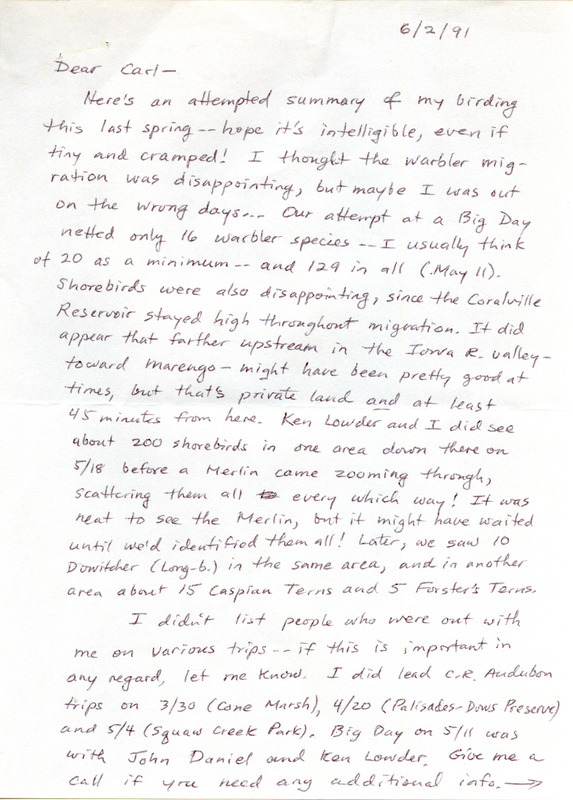 6/2/91
Dear Carl—
Here's an attempted summary of my birding
this last spring -- hope it's intelligible, even if
tiny and cramped! I thought the warbler mig-
ration was disappointing, but maybe I was out
on the wrong days... Our attempt at a Big Day
netted only 16 warbler species -- I usually think
of 20 as a minimum -- and 129 in all (May 11).
Shorebirds were also disappointing, since the Coralville
Reservoir stayed high throughout migration. It did
appear that farther upstream in the Iowa R. valley—
toward Marengo— might have been pretty good at
times, but that's private land and at least
45 minutes from here. Ken Lowder and I did see
about 200 shorebirds in one area down there on
5/18 before a Merlin came zooming through,
scattering them all every which way! It was
neat to see the Merlin, but it might have waited
until we'd identified them all! Later, we saw 10
Dowitcher (Long-b.) in the same area, and in another
area about 15 Caspian Terns and 5 Forster's Terns.
I didn't list people who were out with
me on various trips -- if this is important in
any regard, let me know. I did lead C.R. Audubon
trips on 3/30 (Cone Marsh), 4/20 (Palisades-Dows Preserve)
and 5/4 (Squaw Creek Park). Big Day on 5/11 was
with John Daniel and Ken Lowder. Give me a
call if you need any additional info. →